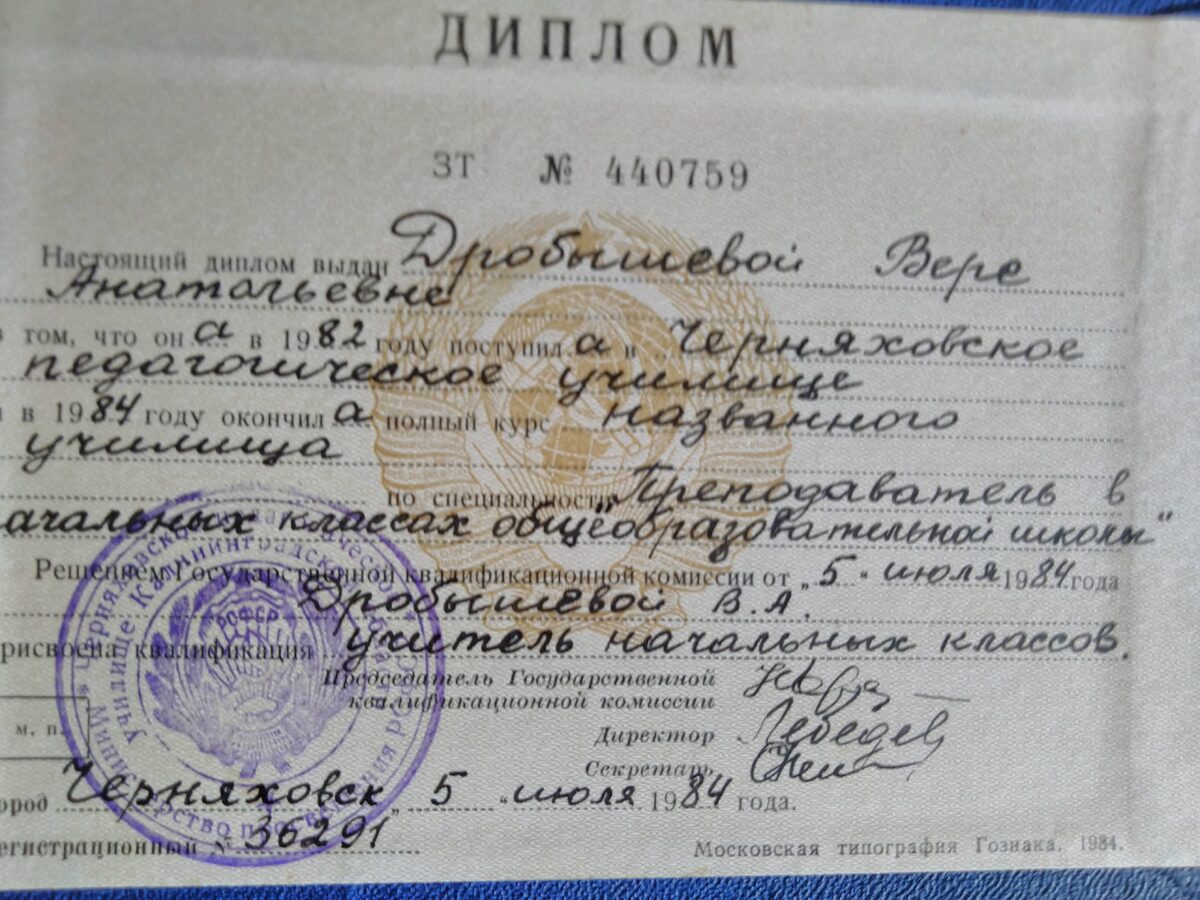 ДИПЛОМ
ЗТ № 440759
Настоящий диплом выдан Дробышевой Вере
Анатольевне
в том, что он а в 1982 году поступил а в Черняховское
педагогическое училище
и в 1984 году окончил а полный курс названного
училища
по специальности "Преподаватель в
ачальных классах общеобразовательной школы"
Решением Государственной квалификационной комиссии от "5" июля 1984 года
Дробышевой В.А.
рисвоена квалификация учитель начальных классов.
Председатель Государственной
квалификационной комиссии
Директор Лебедев
Секретарь
м. п.
ород Черняховск "5" июля 1984 года.
егистрационный № 36291
Московская типография Гознака. 1984.
РСФСР
Министерство просвещения РСФСР
Черняховское педагогическое
училище Калининградской области